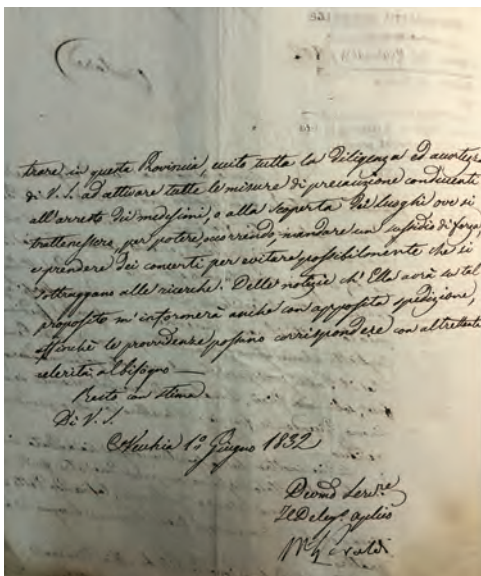 trare in questa Provincia, ecito tutta la Diligenza ed accortezza
di V. S. ad attivare tutte le misure di precauzione conducenti
all'arresto dei medesimi, o alla scoperta dei luoghi ove si
trattenessero, per potere, occorrendo, mandare un sussidio di forza,
e prendere dei concerti per evitare possibilmente che si
sottraggano alle ricerche. Delle notizie ch' Ella avrà su tal
proposito m' informerà anche con apposita spedizione,
affinchè le provvidenze possano corrispondere con altrettanta
celerità al bisogno —
Resto con stima
Di V. S.
CVecchia 1º Giugno 1832
Devmo Servre
Il Delegº aplico